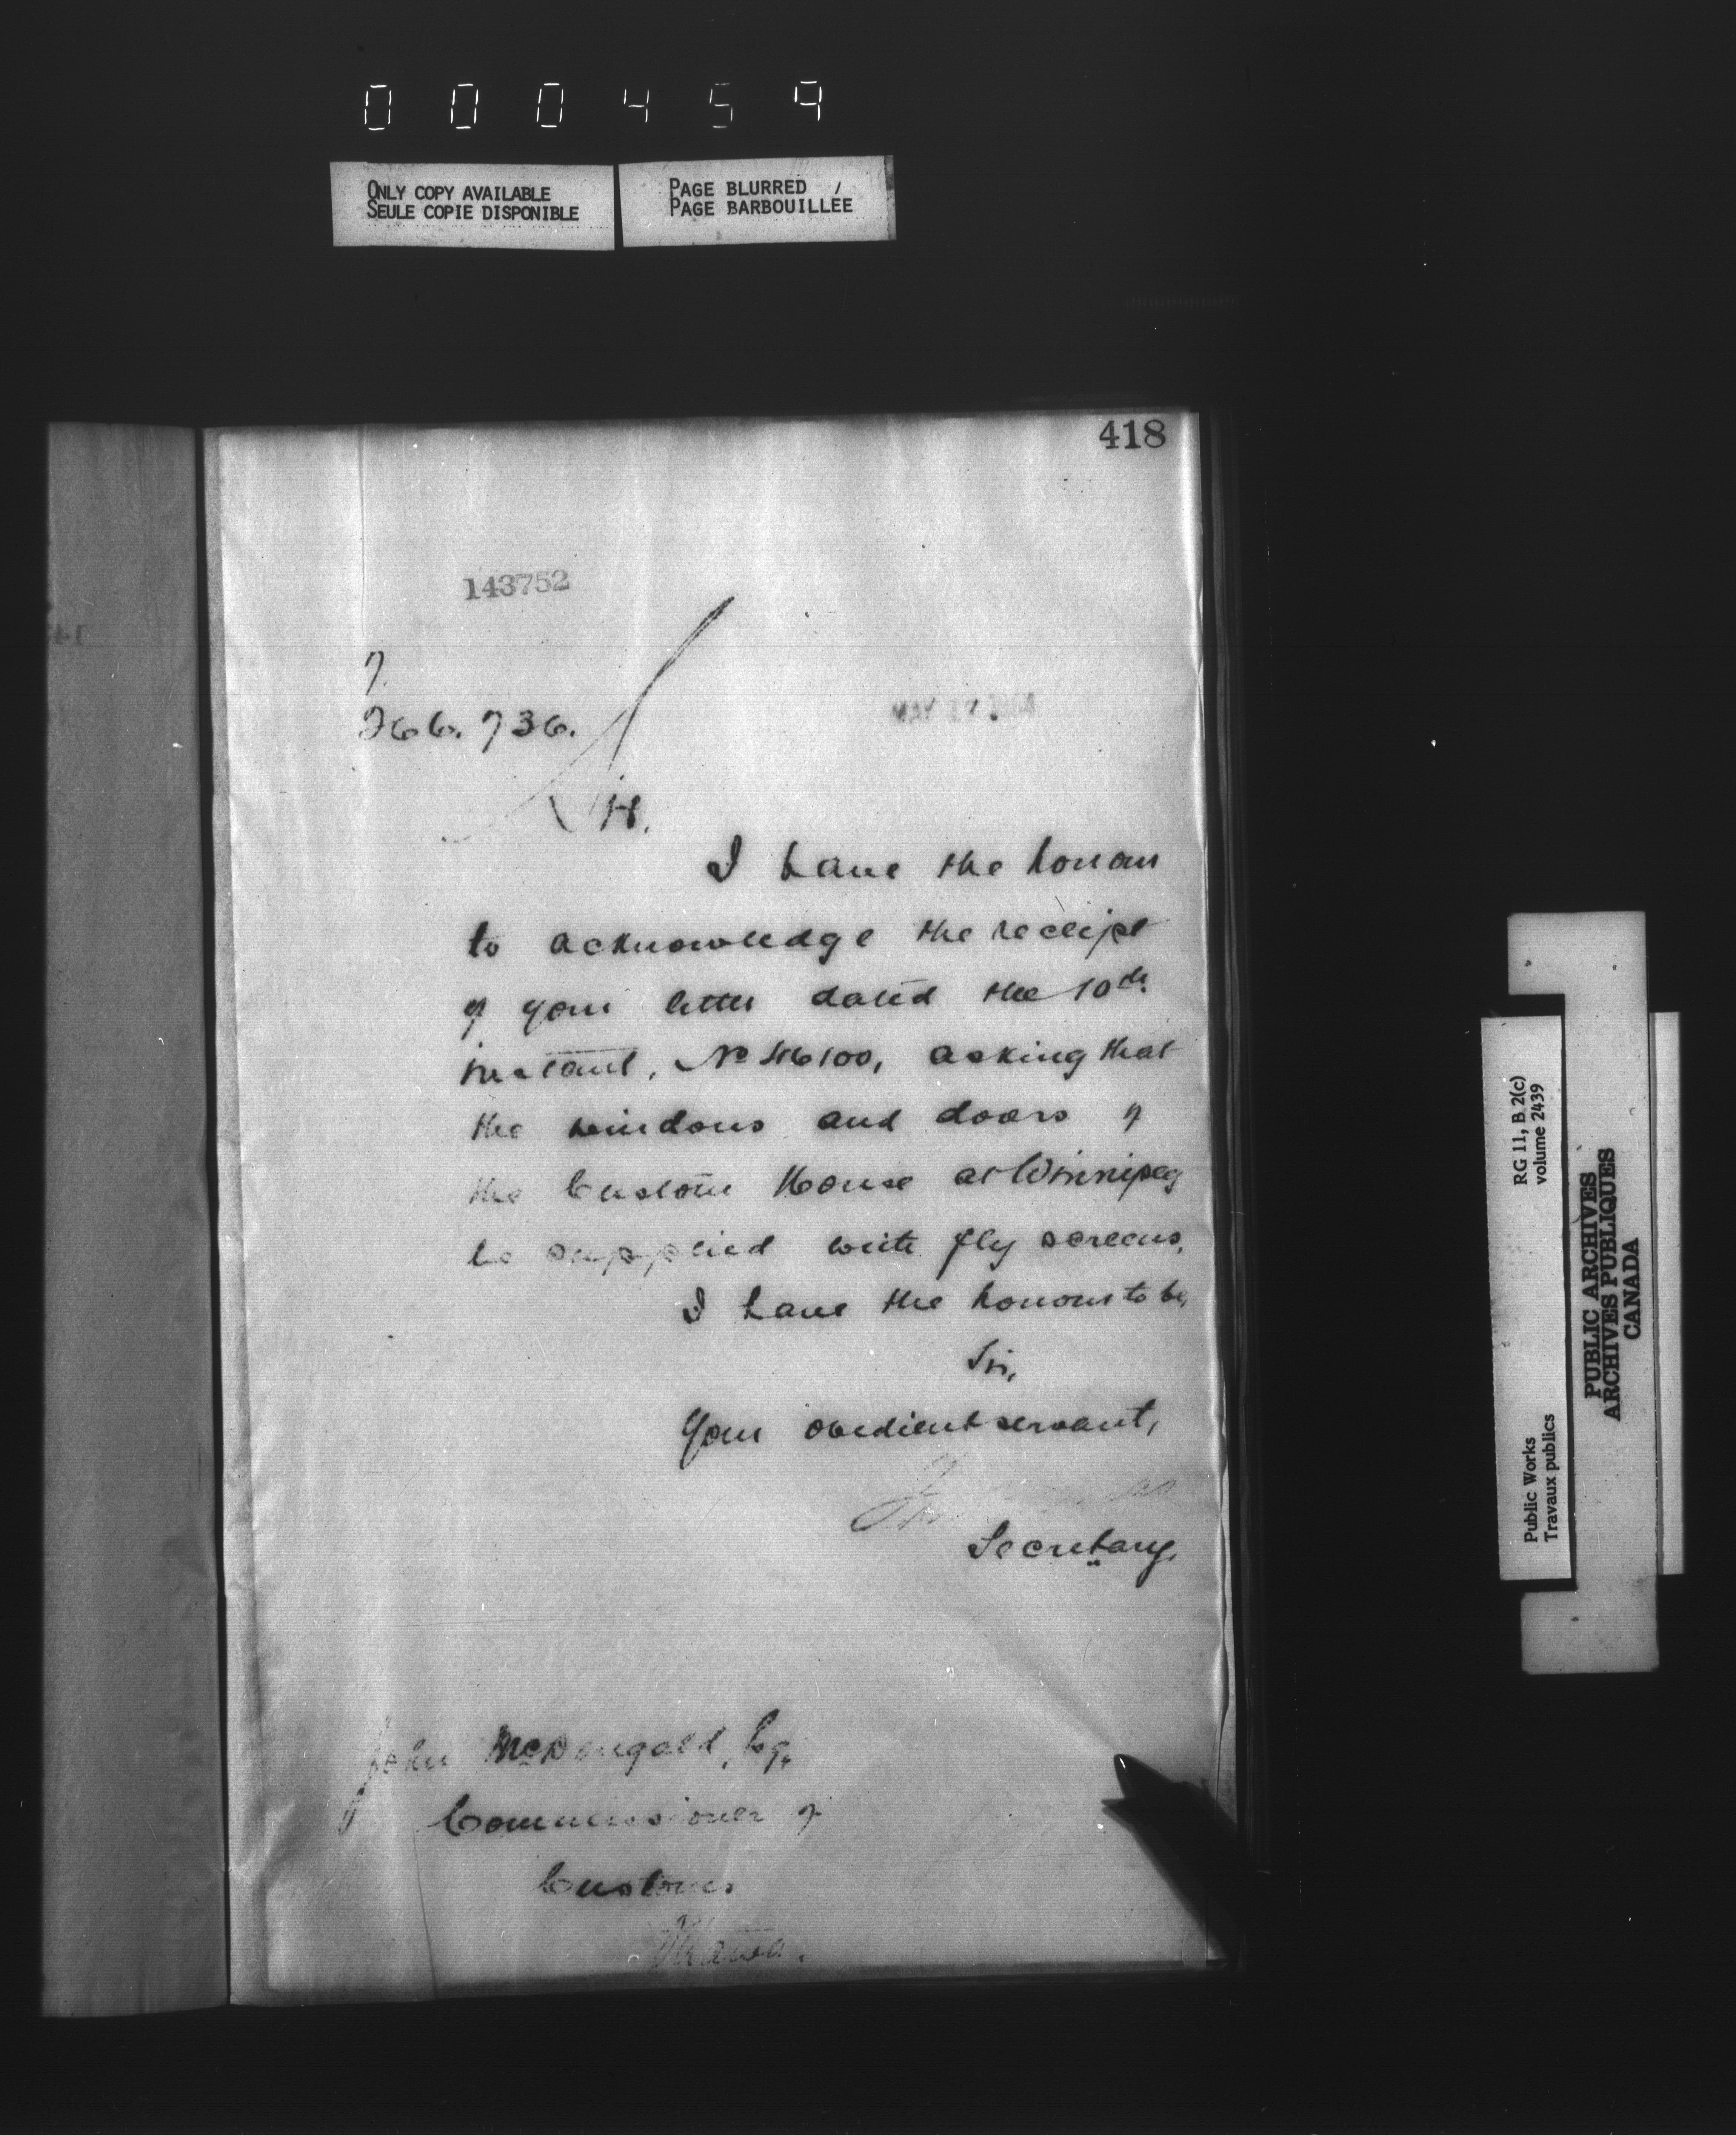 000459
ONLY COPY AVAILABLE
SEULE COPIE DISPONIBLE
PAGE BLURRED /
PAGE BARBOUILLÉE
418
143752
7.
266.736.
MAY 17 1904
H.
I have the honour
to acknowledge the receipt
of your letter dated the 10th
instant, No 46100, asking that
the windows and doors of
the Custom House at Winnipeg
be supplied with fly screens.
I have the honour to be,
Sir,
Your obedient servant,
Secretary.
John McDougald, Esq.
Commissioner of
Customs
Ottawa.
RG 11, B 2(c)
volume 2439
Public Works
Travaux publics
PUBLIC ARCHIVES
ARCHIVES PUBLIQUES
CANADA